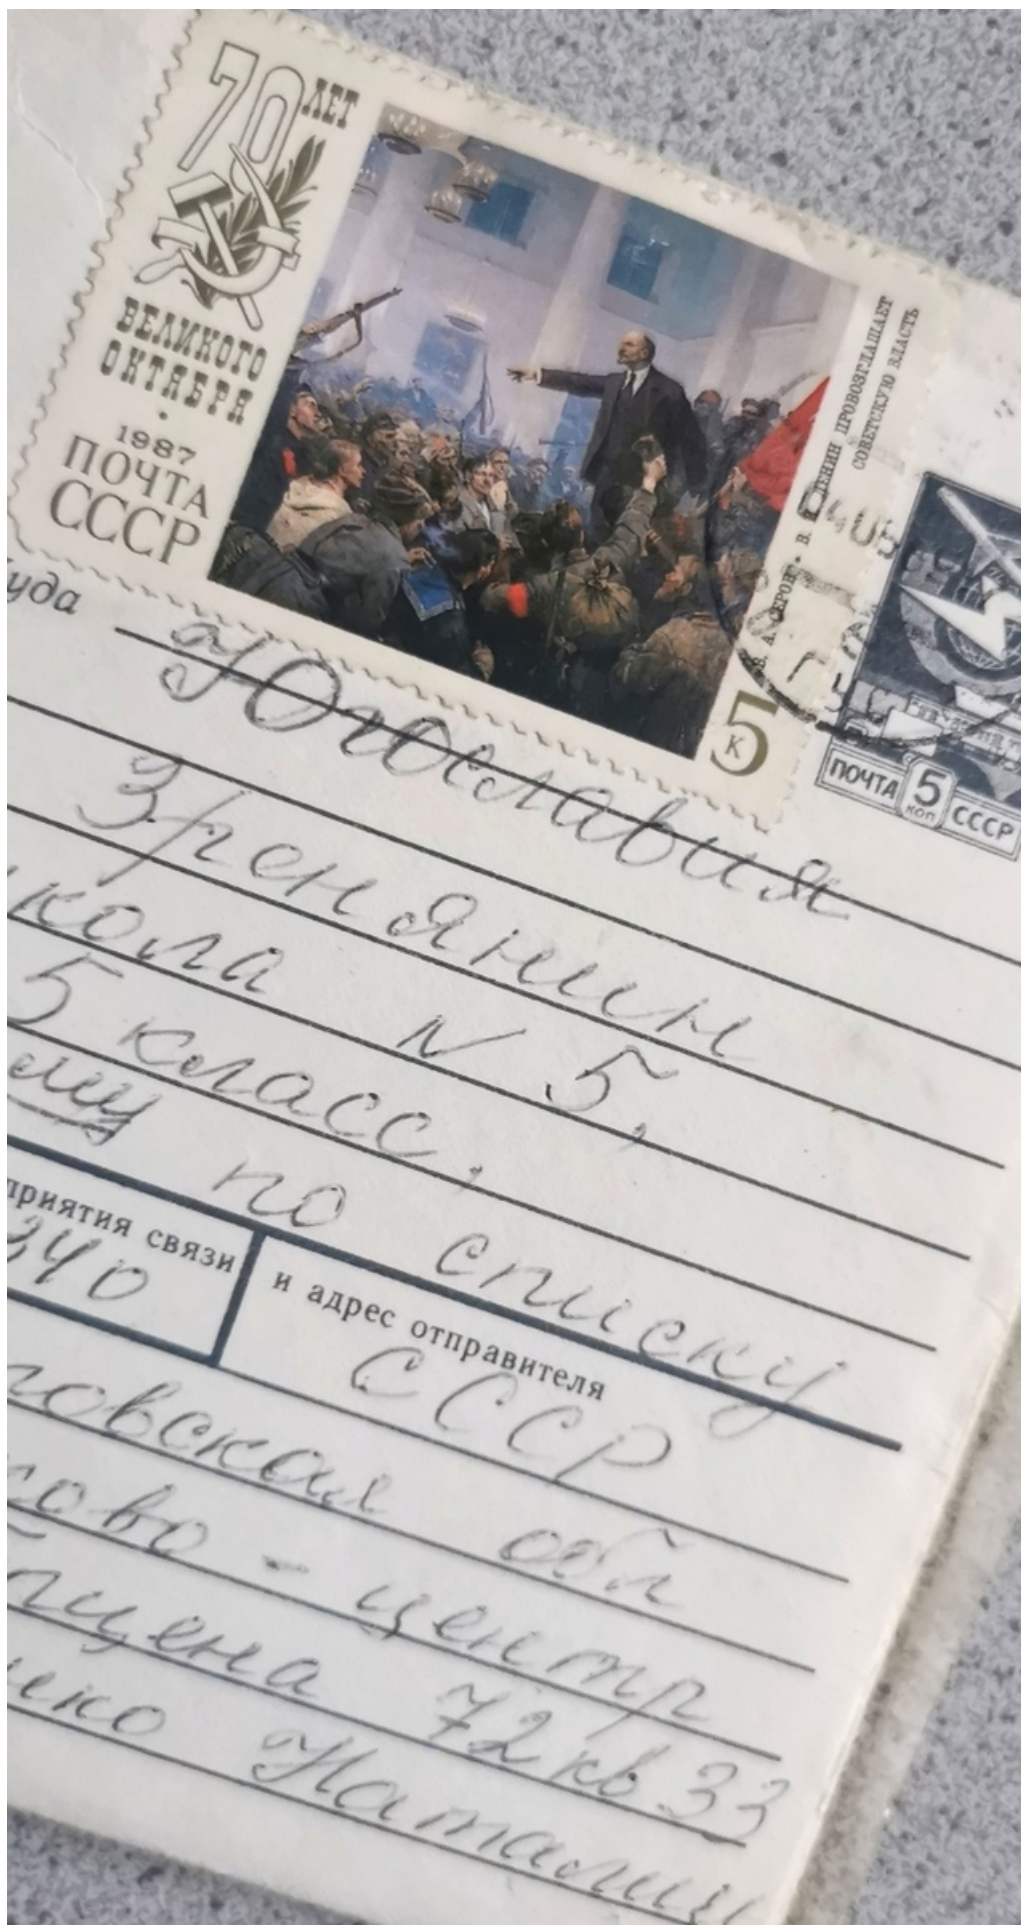 70 ЛЕТ
ВЕЛИКОГО
ОКТЯБРЯ
1987
ПОЧТА
СССР
ЛЕНИН ПРОВОЗГЛАШАЕТ
СОВЕТСКУЮ ВЛАСТЬ
5
К
ПОЧТА 5 КОП СССР
уда
Югославия
Зренянин
кола N 5,
5 класс,
ому по списку
приятия связи и адрес отправителя
340
СССР
овская обл
сово - центр
пцена 72 кв 33
нко Наталии